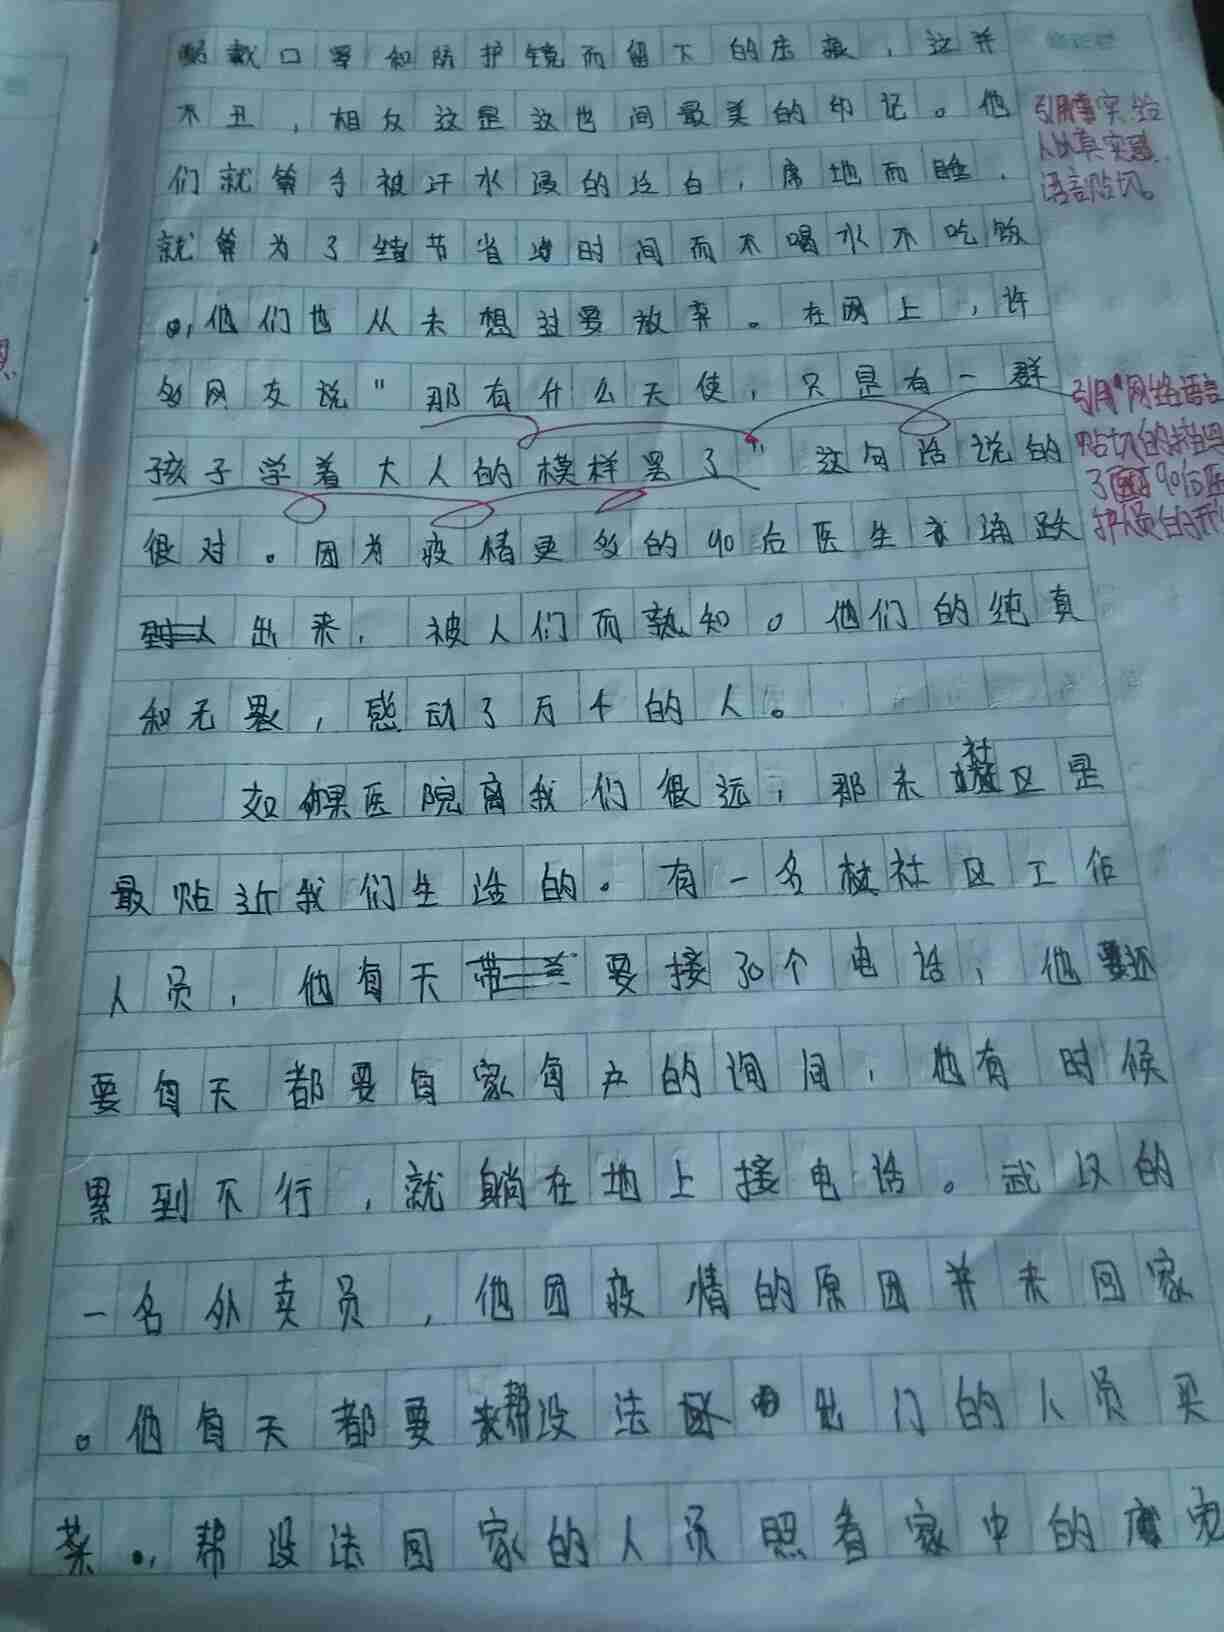 戴口罩和防护镜而留下的压痕，这并
不丑，相反这是这世间最美的印记。他
们就算手被汗水浸的泛白，席地而睡，
就算为了节省时间而不喝水不吃饭
，他们也从未想过要放弃。在网上，许
多网友说"那有什么天使，只是有一群
孩子学着大人的模样罢了"，这句话说的
很对。因为疫情更多的90后医生亦涌跃
出来，被人们而熟知。他们的纯真
和无畏，感动了万千的人。
如果医院离我们很远，那末社区是
最贴近我们生活的。有一名社区工作
人员，他每天要接30个电话，他还
要每天都要每家每户的询问，他有时候
累到不行，就躺在地上接电话。武汉的
一名外卖员，他因疫情的原因并未回家
。他每天都要帮没法出门的人员买
菜，帮没法回家的人员照看家中的宠
引用事实，给
人以真实感，
语言贴切。
引用"网络语言
贴切的描四
了90后医
护人员的形